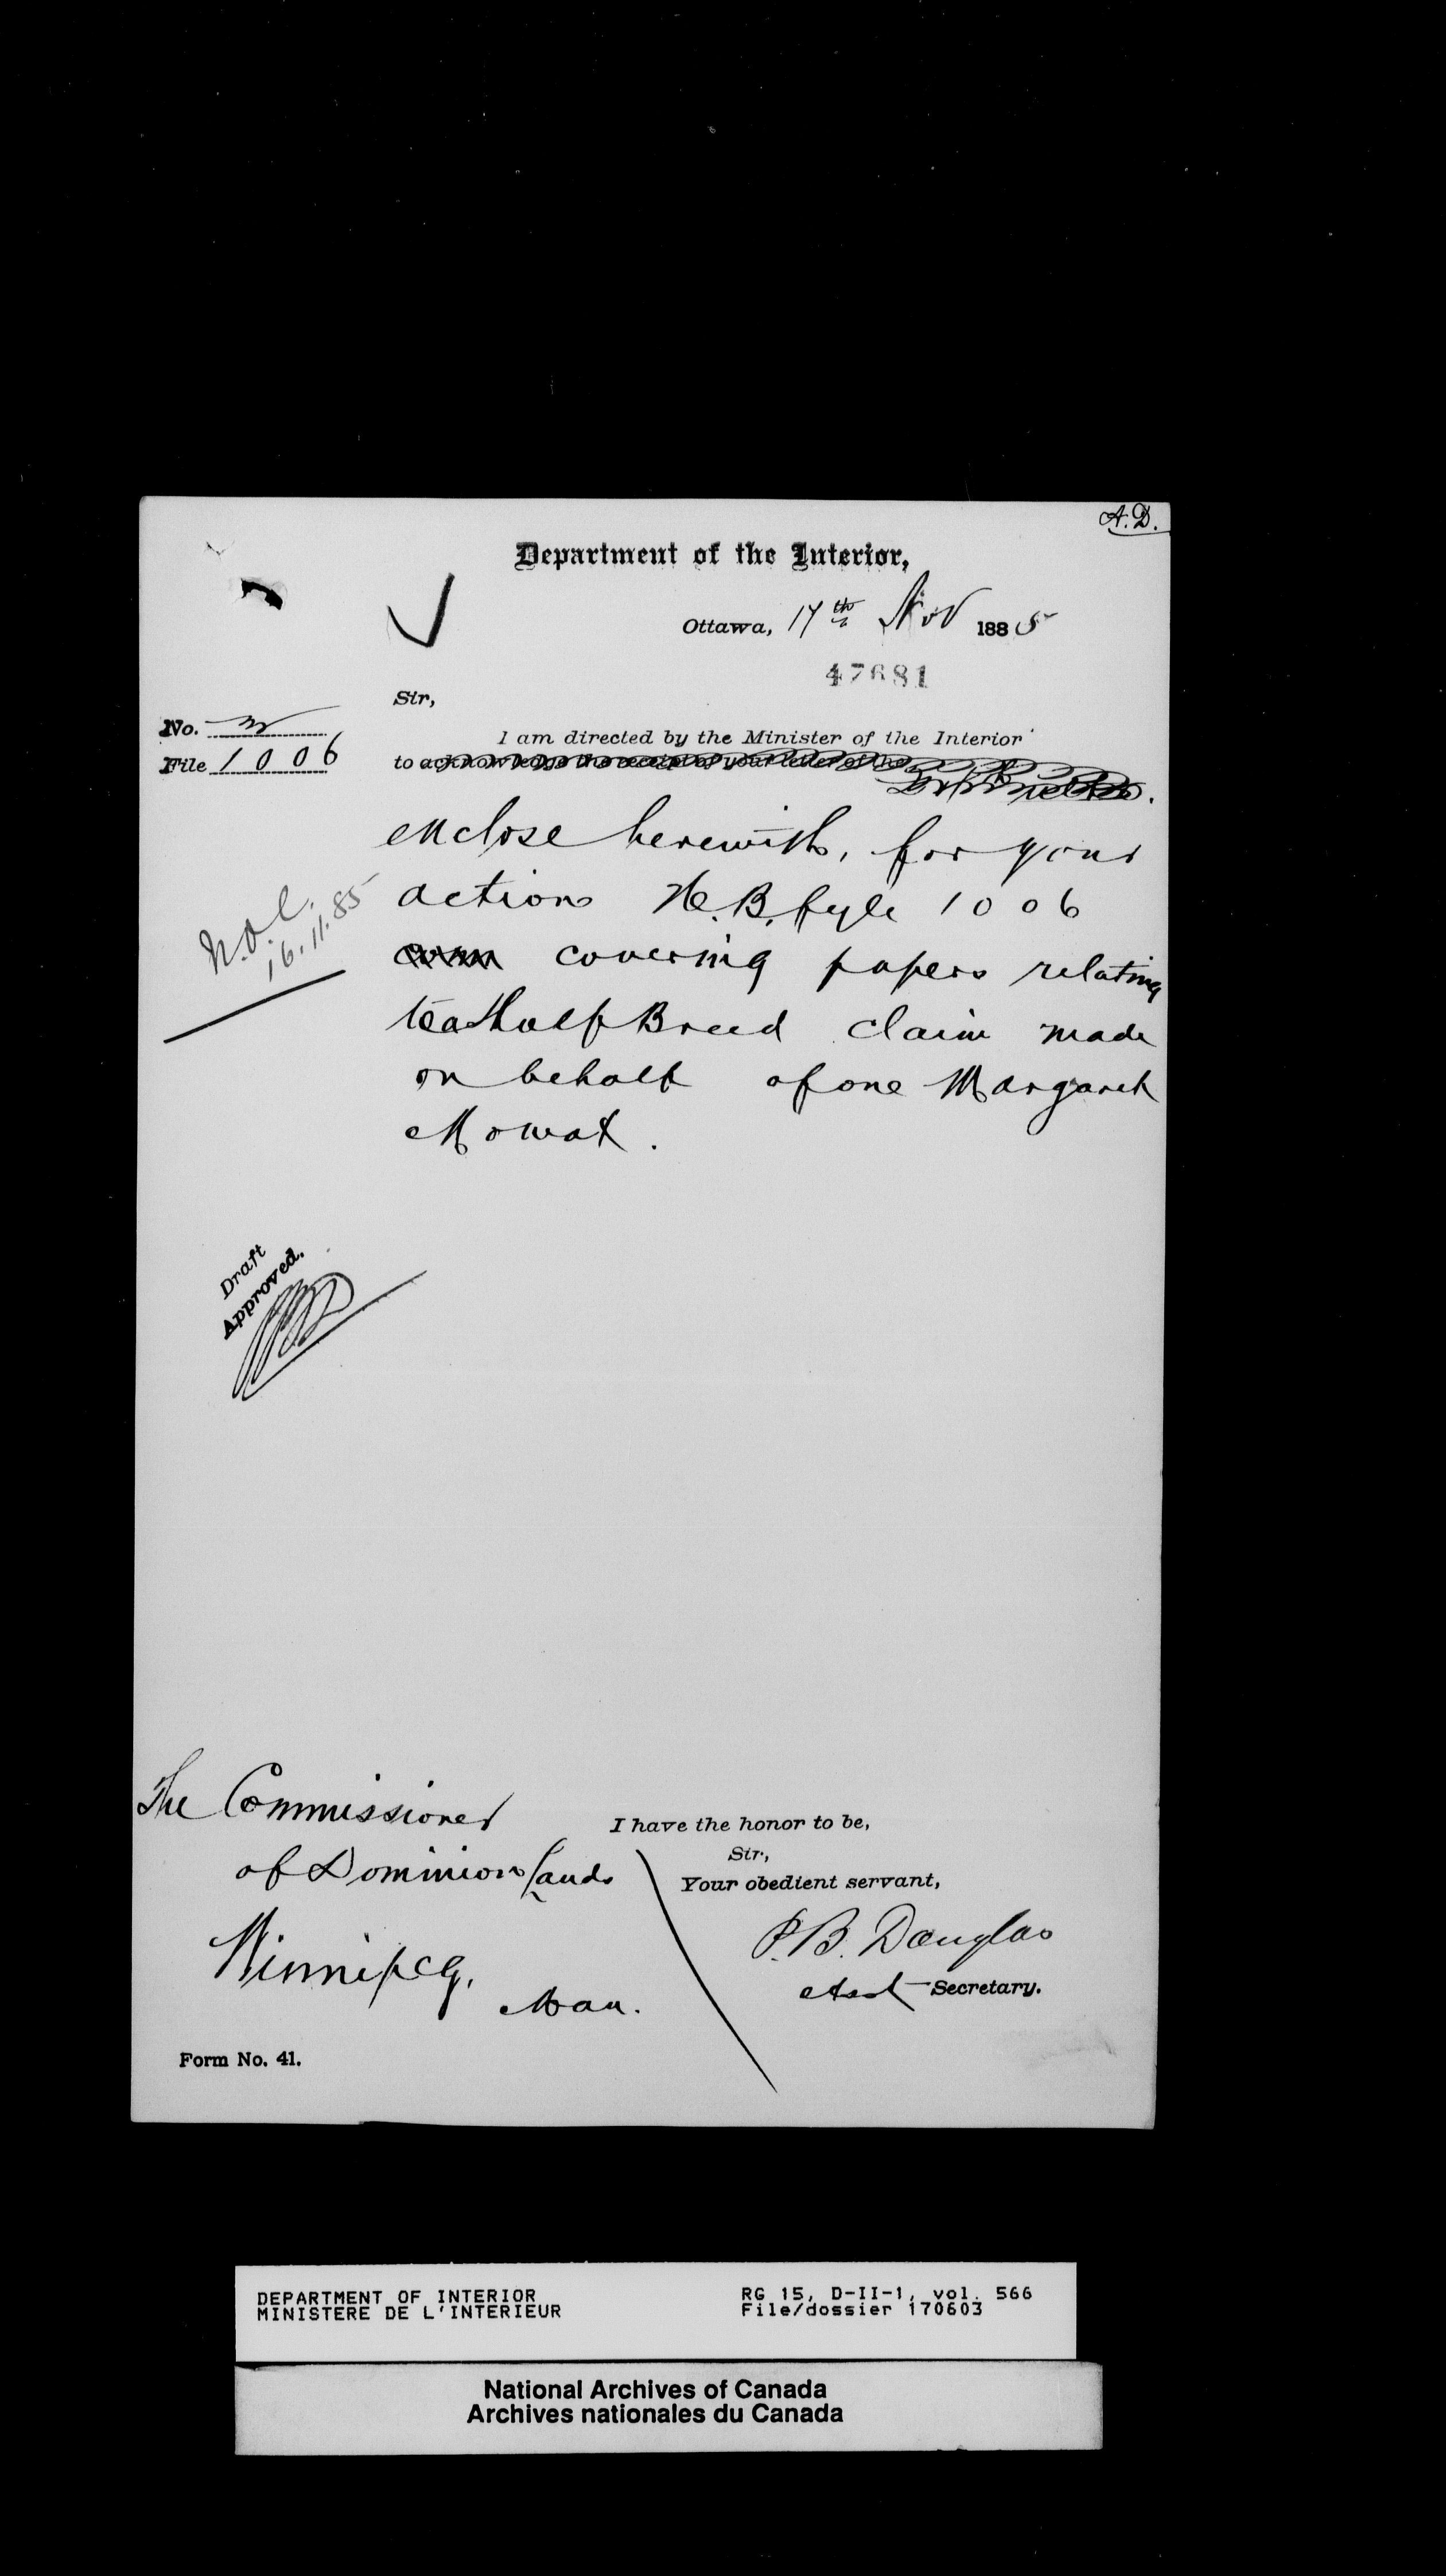 A.D.
Department of the Interior,
Ottawa, 17th Nov 1885
47681
Sir,
No.
File 1006
I am directed by the Minister of the Interior
to acknowledge the receipt of your letter of the
enclose herewith, for your
N.O.C.
16.11.85
action H.B. fyle 1006
covering papers relating
to a Half Breed claim made
on behalf of one Margaret
Mowat.
Draft
Approved.
The Commissioner
of Dominion Lands
Winnipeg,
Man.
I have the honor to be,
Sir,
Your obedient servant,
P.B. Douglas
Asst Secretary.
Form No. 41.
DEPARTMENT OF INTERIOR
MINISTERE DE L'INTERIEUR
RG 15, D-II-1, vol. 566
File/dossier 170603
National Archives of Canada
Archives nationales du Canada